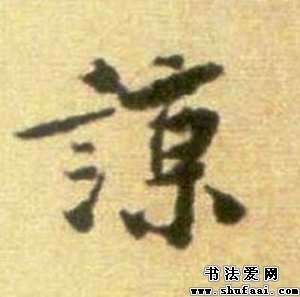 諒
书法爱网
www.shufaai.com